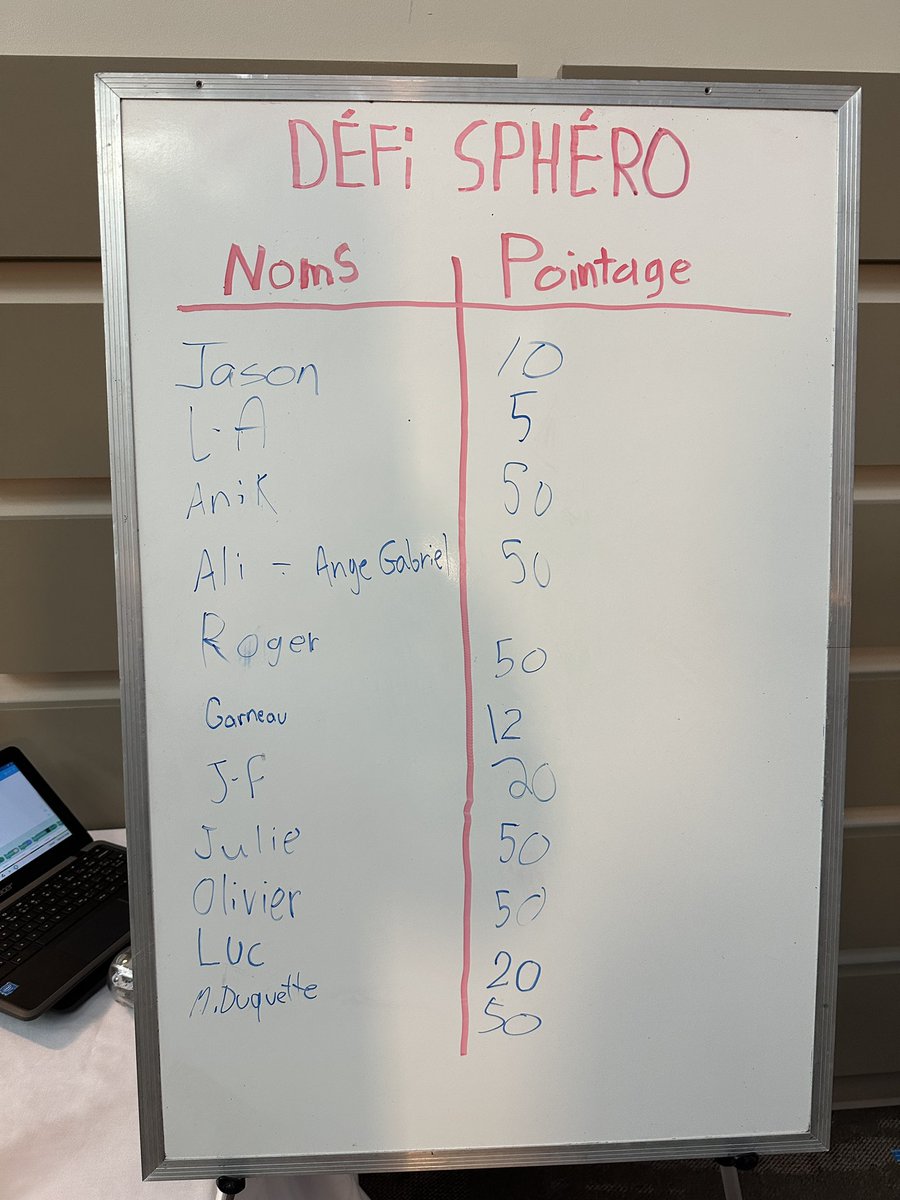 DÉFi SPHÉRO
Noms Pointage
Jason 10
L-A 5
Anik 50
Ali - Ange Gabriel 50
Roger 50
Garneau 12
J-F 20
Julie 50
Olivier 50
Luc 20
M. Duquette 50
acer
intel